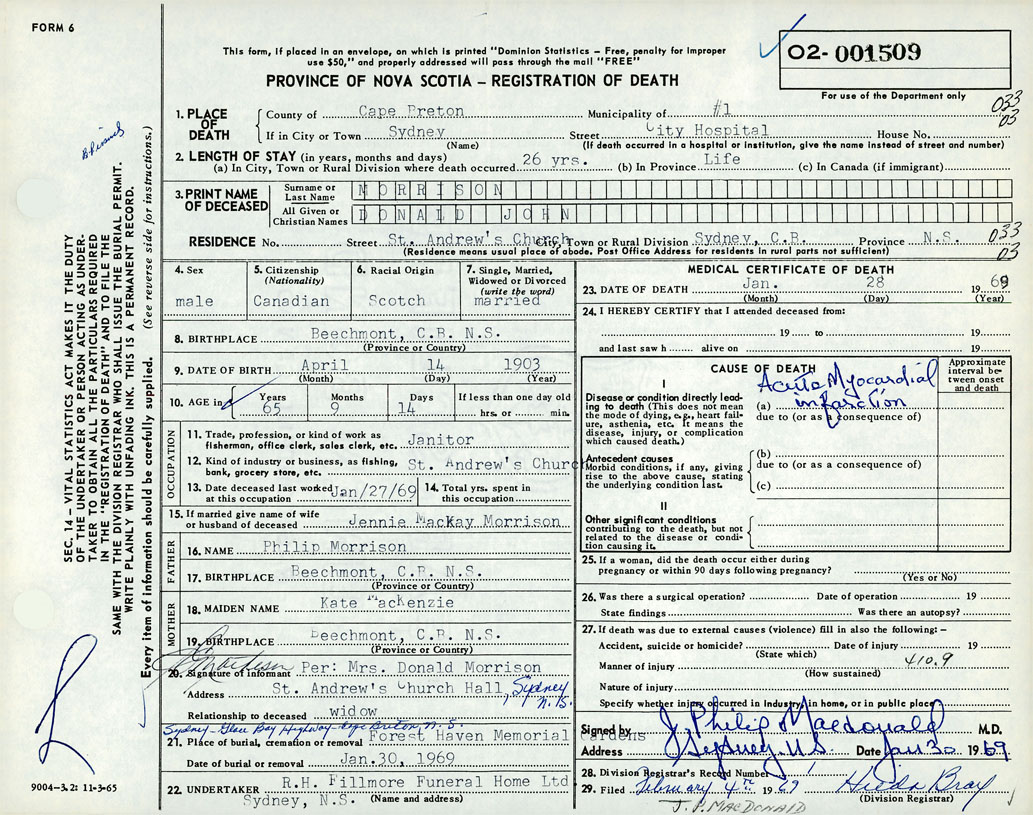 FORM 6
This form, if placed in an envelope, on which is printed "Dominion Statistics – Free, penalty for improper
use $50," and properly addressed will pass through the mail "FREE"
02- 001509
For use of the Department only
PROVINCE OF NOVA SCOTIA – REGISTRATION OF DEATH
033
03
1. PLACE OF DEATH
County of Cape Breton Municipality of #1
If in City or Town Sydney Street City Hospital House No.
(Name) (If death occurred in a hospital or institution, give the name instead of street and number)
2. LENGTH OF STAY (in years, months and days)
(a) In City, Town or Rural Division where death occurred 26 yrs. (b) In Province Life (c) In Canada (if immigrant)
3. PRINT NAME OF DECEASED
Surname or Last Name MORRISON
All Given or Christian Names DONALD JOHN
RESIDENCE No. Street St. Andrew's Church City, Town or Rural Division Sydney, C.B. Province N.S. 033
(Residence means usual place of abode. Post Office Address for residents in rural parts not sufficient) 03
4. Sex
male
5. Citizenship
(Nationality)
Canadian
6. Racial Origin
Scotch
7. Single, Married,
Widowed or Divorced
(write the word)
married
8. BIRTHPLACE Beechmont, C.B. N.S.
(Province or Country)
9. DATE OF BIRTH April 14 1903
(Month) (Day) (Year)
10. AGE in Years Months Days If less than one day old
65 9 14 hrs. or min.
OCCUPATION
11. Trade, profession, or kind of work as
fisherman, office clerk, sales clerk, etc. Janitor
12. Kind of industry or business, as fishing,
bank, grocery store, etc. St. Andrew's Church
13. Date deceased last worked
at this occupation Jan/27/69
14. Total yrs. spent in
this occupation
15. If married give name of wife
or husband of deceased Jennie MacKay Morrison
FATHER
16. NAME Philip Morrison
17. BIRTHPLACE Beechmont, C.B. N.S.
(Province or Country)
MOTHER
18. MAIDEN NAME Kate MacKenzie
19. BIRTHPLACE Beechmont, C.B. N.S.
(Province or Country)
20. Signature of informant Per: Mrs. Donald Morrison
Address St. Andrew's Church Hall, Sydney
N.S.
Relationship to deceased widow
Sydney - Glace Bay Highway - Cape Breton N.S.
21. Place of burial, cremation or removal Forest Haven Memorial Gardens
Date of burial or removal Jan.30, 1969
22. UNDERTAKER R.H. Fillmore Funeral Home Ltd
Sydney, N.S. (Name and address)
MEDICAL CERTIFICATE OF DEATH
23. DATE OF DEATH Jan. 28 1969
(Month) (Day) (Year)
24. I HEREBY CERTIFY that I attended deceased from:
19 to 19
and last saw h alive on 19
CAUSE OF DEATH
Approximate
interval be-
tween onset
and death
I
Disease or condition directly lead-
ing to death (This does not mean
the mode of dying, e.g., heart fail-
ure, asthenia, etc. It means the
disease, injury, or complication
which caused death.)
(a) Acute Myocardial
infarction
due to (or as a consequence of)
Antecedent causes
Morbid conditions, if any, giving
rise to the above cause, stating
the underlying condition last.
(b)
due to (or as a consequence of)
(c)
II
Other significant conditions
contributing to the death, but not
related to the disease or condi-
tion causing it.
25. If a woman, did the death occur either during
pregnancy or within 90 days following pregnancy?
(Yes or No)
26. Was there a surgical operation? Date of operation 19
State findings Was there an autopsy?
27. If death was due to external causes (violence) fill in also the following: –
Accident, suicide or homicide? Date of injury 19
(State which)
410.9
Manner of injury
(How sustained)
Nature of injury
Specify whether injury occurred in industry, in home, or in public place
Signed by J. Philip Macdonald M.D.
Address Sydney, N.S. Date Jan 30 1969
28. Division Registrar's Record Number
29. Filed February 4th 1969 Hilda Bray
(Division Registrar)
J. P. MACDONALD
SEC. 14 – VITAL STATISTICS ACT MAKES IT THE DUTY
OF THE UNDERTAKER OR PERSON ACTING AS UNDER-
TAKER TO OBTAIN ALL THE PARTICULARS REQUIRED
IN THE "REGISTRATION OF DEATH" AND TO FILE THE
SAME WITH THE DIVISION REGISTRAR WHO SHALL ISSUE THE BURIAL PERMIT.
WRITE PLAINLY WITH UNFADING INK. THIS IS A PERMANENT RECORD.
Every item of information should be carefully supplied. (See reverse side for instructions.)
9004-3.2: 11-3-65